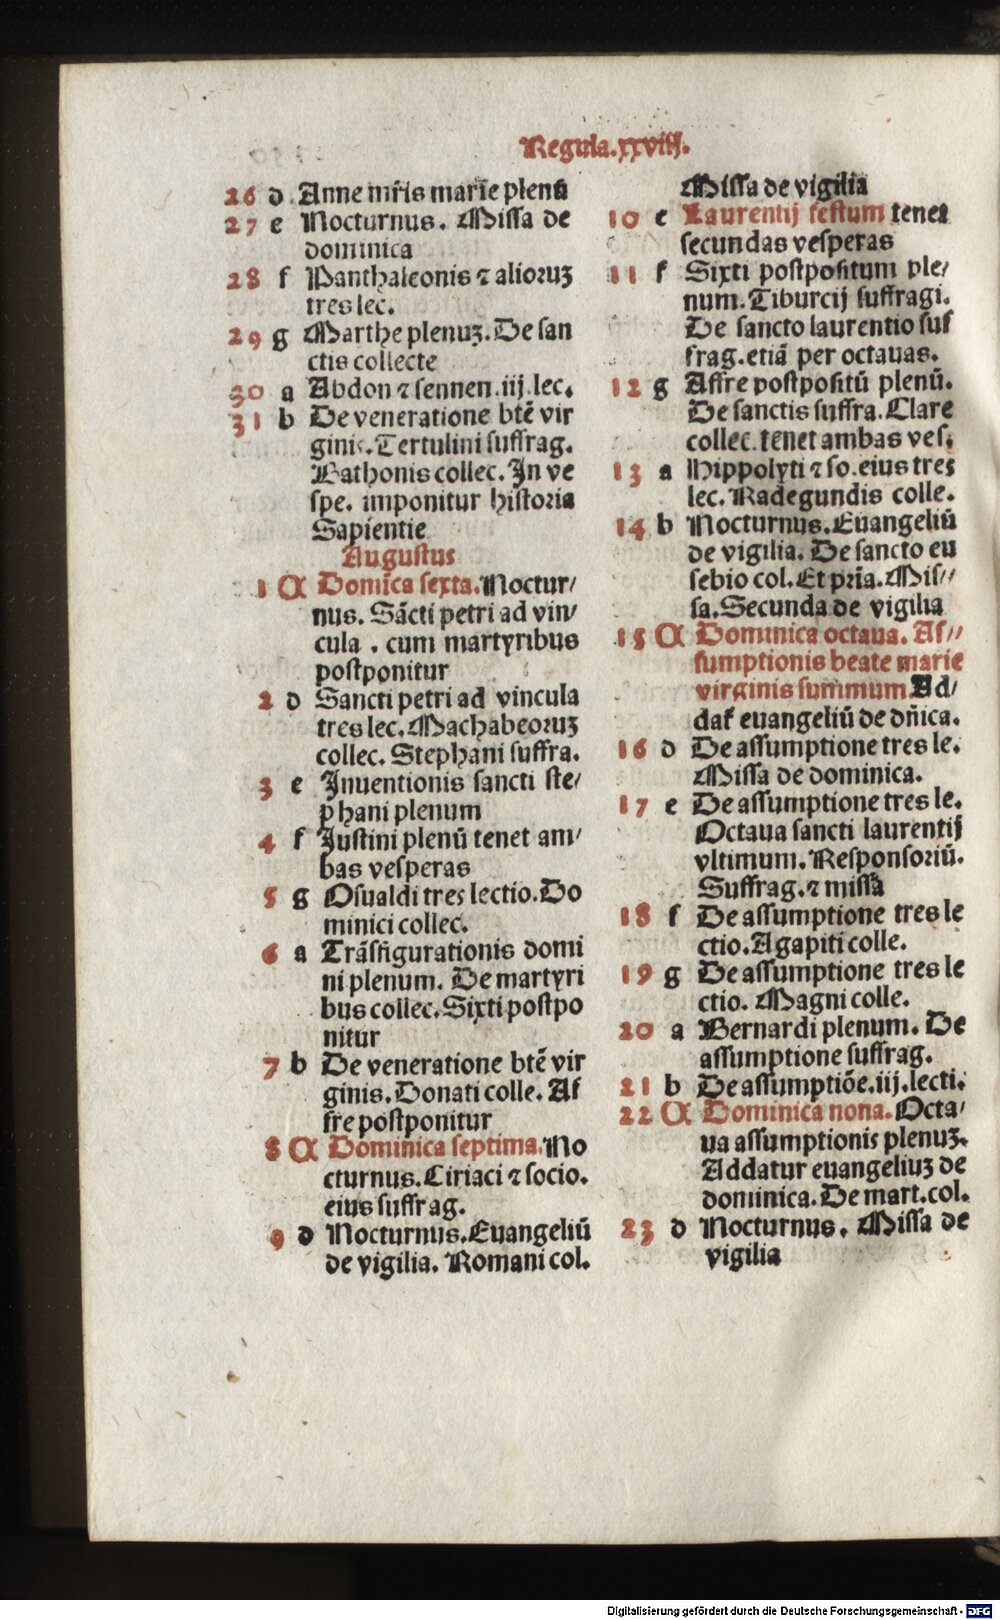 Regula.xxviij.
26 d Anne mr̄is marie plenū
27 e Nocturnus. Missa de
dominica
28 f Panthaleonis ⁊ alioruꝫ
tres lec.
29 g Marthe plenuꝫ. De san
ctis collecte
30 a Abdon ⁊ sennen.iij.lec.
31 b De veneratione btē vir
ginis. Tertulini suffrag.
Bathonis collec. In ve
spe. imponitur historia
Sapientie
Augustus
1 A Domīca sexta. Noctur/
nus. Sācti petri ad vin/
cula . cum martyribus
postponitur
2 d Sancti petri ad vincula
tres lec. Machabeoruꝫ
collec. Stephani suffra.
3 e Inuentionis sancti ste/
phani plenum
4 f Iustini plenū tenet am/
bas vesperas
5 g Osualdi tres lectio. Do
minici collec.
6 a Trāsfigurationis domi
ni plenum. De martyri
bus collec. Sixti postpo
nitur
7 b De veneratione btē vir
ginis. Donati colle. Af
fre postponitur
8 A Dominica septima. No
cturnus. Ciriaci ⁊ socio.
eius suffrag.
9 d Nocturnus. Euangeliū
de vigilia. Romani col.
Missa de vigilia
10 e Laurentij festum tenet
secundas vesperas
11 f Sixti postpositum ple/
num. Tiburcij suffragi.
De sancto laurentio suf
frag. etiā per octauas.
12 g Affre postpositū plenū.
De sanctis suffra. Clare
collec. tenet ambas ves.
13 a Hippolyti ⁊ so. eius tres
lec. Radegundis colle.
14 b Nocturnus. Euangeliū
de vigilia. De sancto eu
sebio col. Et pr̄ia. Mis//
sa. Secunda de vigilia
15 A Dominica octaua. As//
sumptionis beate marie
virginis summum. Ad/
daꝉ euangeliū de dn̄ica.
16 d De assumptione tres le.
Missa de dominica.
17 e De assumptione tres le.
Octaua sancti laurentij
vltimum. Responsoriū.
Suffrag. ⁊ missa
18 f De assumptione tres le
ctio. Agapiti colle.
19 g De assumptione tres le
ctio. Magni colle.
20 a Bernardi plenum. De
assumptione suffrag.
21 b De assumptiōe.iij.lecti.
22 A Dominica nona. Octa/
ua assumptionis plenuꝫ.
Addatur euangeliuꝫ de
dominica. De mart. col.
23 d Nocturnus. Missa de
vigilia
Digitalisierung gefördert durch die Deutsche Forschungsgemeinschaft - DFG